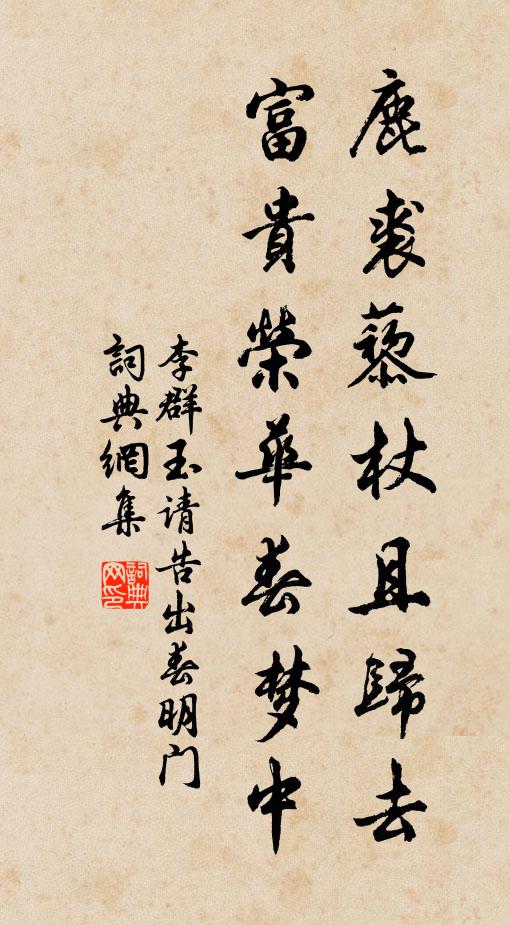 鹿裘藜杖且歸去
富貴榮華春梦中
李群玉请告出春明门
詞典網集
詞典
网印